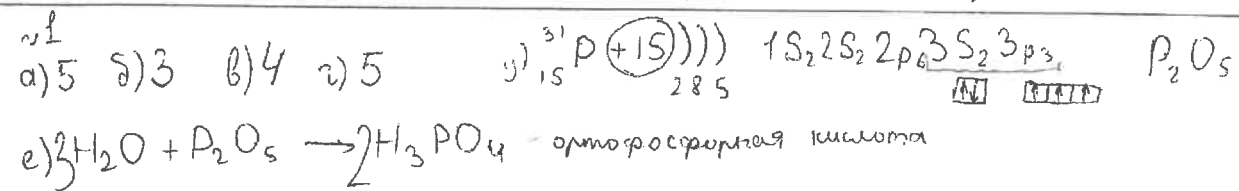 №1
а) 5 б) 3 в) 4 г) 5 д) ³¹₁₅P (+15) ) ) ) ) 2 8 5 1S₂2S₂2p₆3S₂3p₃ P₂O₅
е) 3H₂O + P₂O₅ → 2H₃PO₄ ортофосфорная кислота